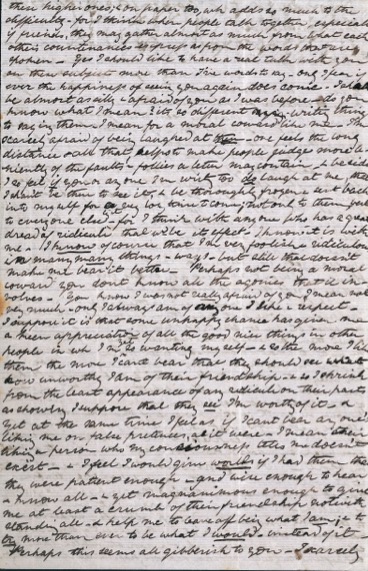 their higher ones, & on paper too, wh. adds so much to the
difficulty - for I think when people talk together, especially
if friends, they may gather almost as much from what each
others countenances express as from the words that are
spoken - Yes I should like to have a real talk with you
on this subject more than I've words to say - only I fear if
ever the happiness of seeing you again does come - I shall
be almost as silly & afraid of you as I was before - do you
know what I mean? it's so different writing things
to saying them I mean for a moral coward like me - I'm
scarcely afraid of being laughed at then - one feels the long
distance & all that helps to make people judge more le-
niently of the faults & follies a letter may contain & besides
I so feel if you or anyone I'm writing to do laugh at me, then
I shan't be there to see it, & be thoroughly frozen & sent back
into myself for
to everyone else - for I think with anyone who has a great
dread of ridicule that will be its effect - I know it is with
me - I know of course that I'm very foolish & ridiculous
in many many things & ways - but still that doesn't
make me bear it better - Perhaps not being a moral
coward you don't know all the agonies that it in-
volves - You know I was not really afraid of you, I mean not
very much - only I always am of any one I like & respect -
I suppose it is that some unhappy chance has given me
a keen appreciation of all the good nice things in other
people in wh. I'm so wanting myself - & so the more I like
them the more I can't bear that they should see what
how unworthy I am of their friendship - & so I shrink
from the least appearance of any ridicule on their part
as showing I suppose that they see I'm worthy of it - &
yet at the same time I feel as if I can't bear any one
liking me on false pretences, as it were - I mean their
liking a person who my consciousness tells me doesn't
exist - & I feel I would give world if I had them that
they were patient enough - and wise enough to hear
& know all - & yet magnanimous enough to give
me at least a crumb of their friendship notwith-
standing all - & help me to leave off being what I am, & to
try more than ever to be what I would - instead of it -
Perhaps this seems all gibberish to you - I scarcely